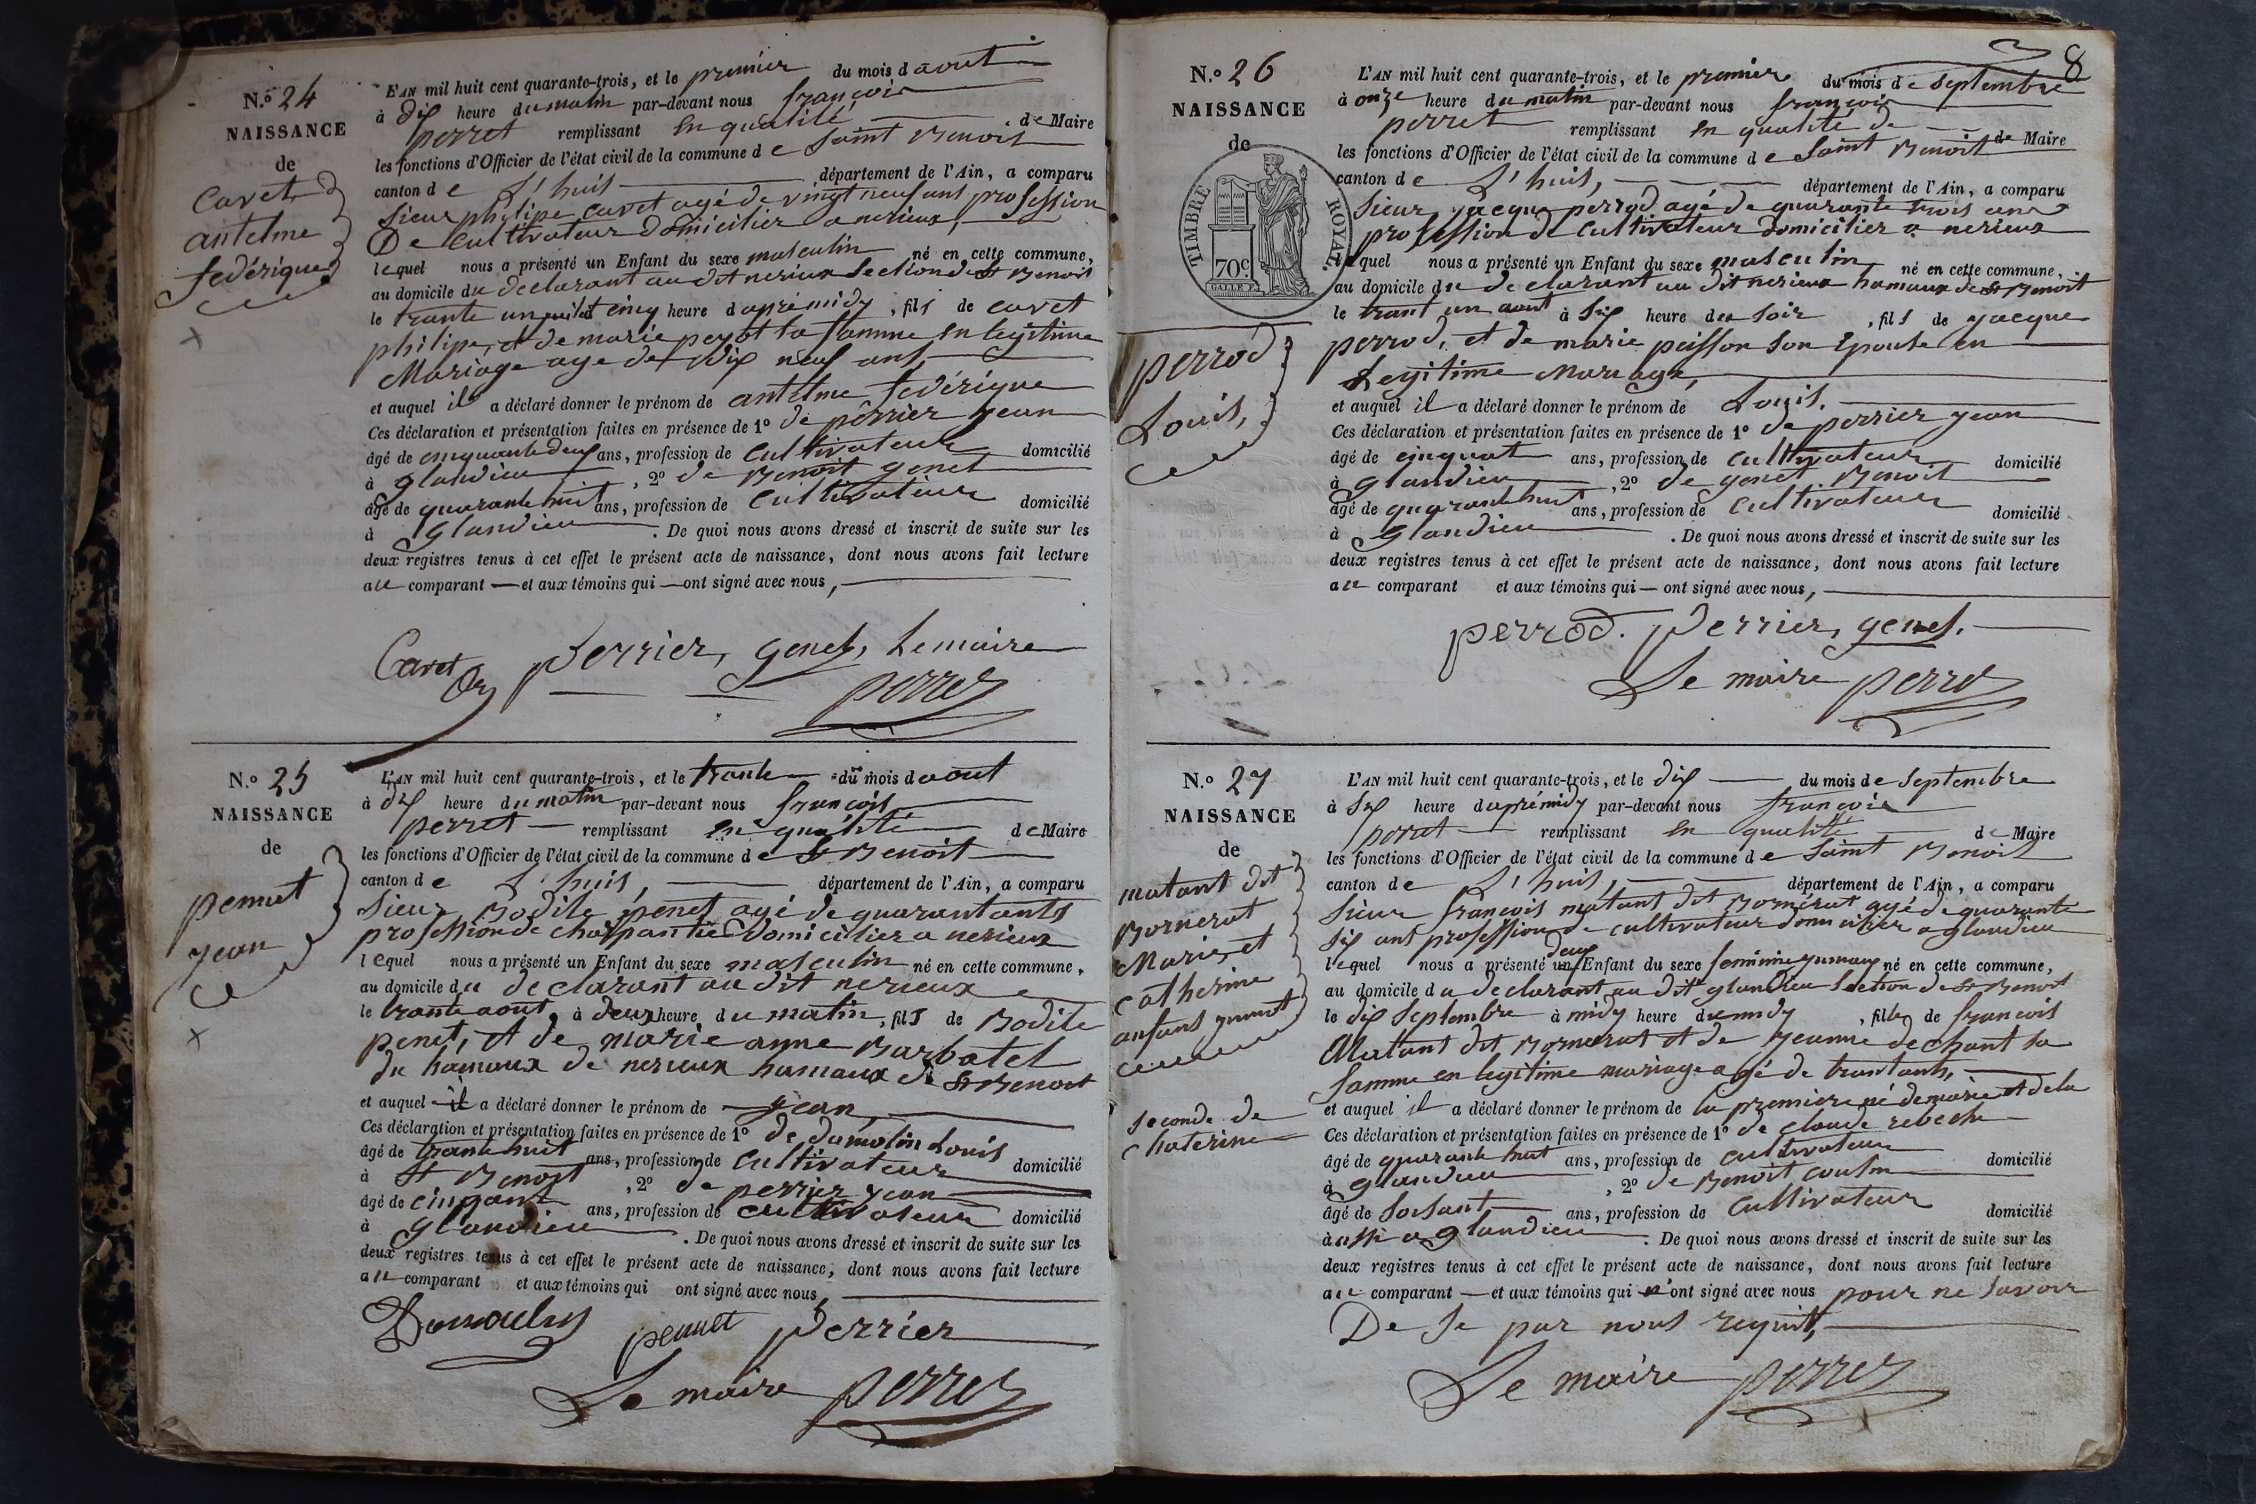 N.º 24
NAISSANCE
de
Cavet
antelme
fedérique
L'AN mil huit cent quarante-trois, et le premier du mois d aout
à dix heure du matin par-devant nous françois
perret remplissant en qualité de Maire
les fonctions d'Officier de l'état civil de la commune d e Saint Benoit
canton d e L'huis département de l'Ain, a comparu
Sieur philipe cavet agé de vingt neuf ans profession
De Cultivateur domicilier a nerieux
lequel nous a présenté un Enfant du sexe masculin né en cette commune,
au domicile du declarant au dit nerieux Section de St Benoit
le trante un juilet cinq heure d aprémidy, fils de cavet
philipe, et de marie peyot sa famme en legitime
Mariage age de dix neuf ans
et auquel il a déclaré donner le prénom de antelme fedérique
Ces déclaration et présentation faites en présence de 1º de perrier jean
âgé de cinquante deux ans, profession de Cultivateur domicilié
à glandieu, 2º de Benoit genet
âgé de quarante huit ans, profession de Cultivateur domicilié
à glandieu. De quoi nous avons dressé et inscrit de suite sur les
deux registres tenus à cet effet le présent acte de naissance, dont nous avons fait lecture
au comparant et aux témoins qui ont signé avec nous,
Cavet Perrier, genet, Lemaire
perret
N.º 25
NAISSANCE
de
pennet
jean
L'AN mil huit cent quarante-trois, et le trante du mois d aout
à dix heure du matin par-devant nous françois
perret remplissant en qualité de Maire
les fonctions d'Officier de l'état civil de la commune d e St Benoit
canton d e L'huis, département de l'Ain, a comparu
Sieur Bodile penet agé de quarantants
profession de charpantier domicilier a nerieux
lequel nous a présenté un Enfant du sexe masculin né en cette commune,
au domicile du declarant au dit nerieux
le trante aout, à deux heure du matin, fils de Bodile
penet, et de marie anne Barbatel
du hamaux de nerieux hamaux de St Benoit
et auquel il a déclaré donner le prénom de jean,
Ces déclaration et présentation faites en présence de 1º de dumolin Louis
âgé de trante huit ans, profession de Cultivateur domicilié
à St Benoit, 2º de perrier jean
âgé de cinqant ans, profession de cultivateur domicilié
à glandieu. De quoi nous avons dressé et inscrit de suite sur les
deux registres tenus à cet effet le présent acte de naissance, dont nous avons fait lecture
au comparant et aux témoins qui ont signé avec nous,
pennet Perrier
Le maire perret
8
N.º 26
NAISSANCE
de
TIMBRE ROYAL.
70c.
perrod
Louis,
L'AN mil huit cent quarante-trois, et le premier du mois d e Septembre
à onze heure du matin par-devant nous françois
perret remplissant en qualité de de Maire
les fonctions d'Officier de l'état civil de la commune d e Saint Benoit
canton d e L'huis, département de l'Ain, a comparu
Sieur jacque perrod agé de quarante trois ans
profession de Cultivateur domicilier a nerieux
lequel nous a présenté un Enfant du sexe masculin né en cette commune,
au domicile du declarant au dit nerieux hamaux de St Benoit
le trant un aout à six heure du soir, fils de jacque
perrod, et de marie peisson son Epouse en
Legitime mariage,
et auquel il a déclaré donner le prénom de Louis.
Ces déclaration et présentation faites en présence de 1º de perrier jean
âgé de cinquat ans, profession de cultivateur domicilié
à glandieu, 2º de genet Benoit
âgé de quarante huit ans, profession de Cultivateur domicilié
à glandieu. De quoi nous avons dressé et inscrit de suite sur les
deux registres tenus à cet effet le présent acte de naissance, dont nous avons fait lecture
au comparant et aux témoins qui ont signé avec nous,
perrod. Perrier, genet.
Le maire perret
N.º 27
NAISSANCE
de
matant dit
Bornerat
Marie, et
catherine
anfans jumot
seconde de
Chaterine
L'AN mil huit cent quarante-trois, et le dix du mois d e Septembre
à six heure d aprémidy par-devant nous françois
perret remplissant en qualité de Maire
les fonctions d'Officier de l'état civil de la commune d e Saint Benoit
canton d e L'huis, département de l'Ain, a comparu
Sieur françois matant dit Bornérat agé de quarante
six ans profession de cultivateur domicilier a glandieu
lequel nous a présenté un deux Enfant du sexe feminin jumaux né en cette commune,
au domicile du declarant au dit glandieu Section de St Benoit
le dix Septembre à midy heure du midy, fille de francois
Matant dit Bornerat et de jeanne dechant sa
famme en legitime mariage agé de trantants,
et auquel il a déclaré donner le prénom de la premiere né de marie et de la
Ces déclaration et présentation faites en présence de 1º de claude rebeche
âgé de quarante huit ans, profession de cultivateur domicilié
à glandieu, 2º de Benoit cousin
âgé de soisant ans, profession de Cultivateur domicilié
à ussi a glandieu. De quoi nous avons dressé et inscrit de suite sur les
deux registres tenus à cet effet le présent acte de naissance, dont nous avons fait lecture
au comparant et aux témoins qui n'ont signé avec nous pour ne savoir
De se par nous requit,
Le maire perret